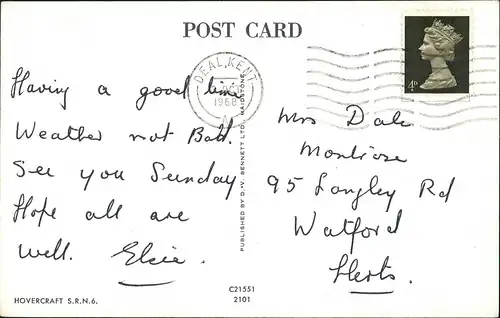 POST CARD
DEAL, KENT
1968
4D
Having a good time
Weather not Bad.
See you Sunday
Hope all are
well. Elsie.
PUBLISHED BY D.W. BENNETT LTD., MAIDSTONE
Mrs Dale
Montrose
95 Langley Rd
Watford
Herts.
HOVERCRAFT S.R.N.6.
C21551
2101